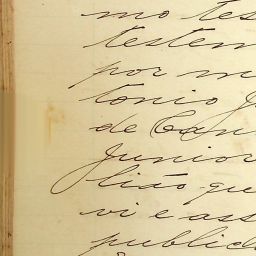 mo tes
testem
por m
tonio J
de Cam
Junior
lião que
vi e ass
publica